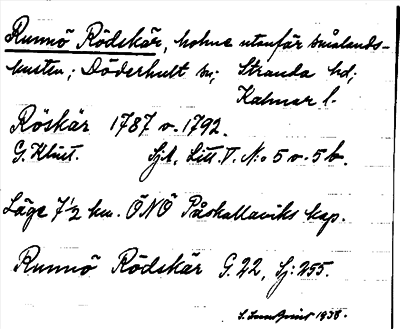 Runnö Rödskär, holme utanför smålands-
kusten; Döderhult sn; Stranda hd;
Kalmar l.
Röskär 1787 o. 1792.
G. Klint. Sjk. Litt. V. N:o 5 o. 5 b.
Läge 7 1/2 km. ÖNÖ Påskallaviks kap.
Runnö Rödskär G. 22, Sj: 255.
1938.